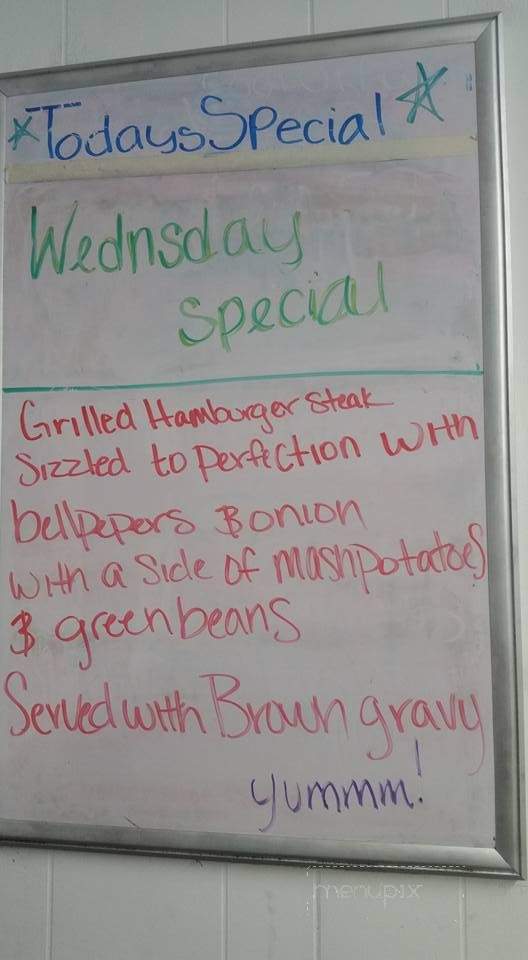 *Todays Special☆
Wednsday
Special
Grilled Hamburger Steak
Sizzled to perfection with
bellpepers & onion
with a side of mashpotatoes
& greenbeans
Served with Brown gravy
yummm!
menupix